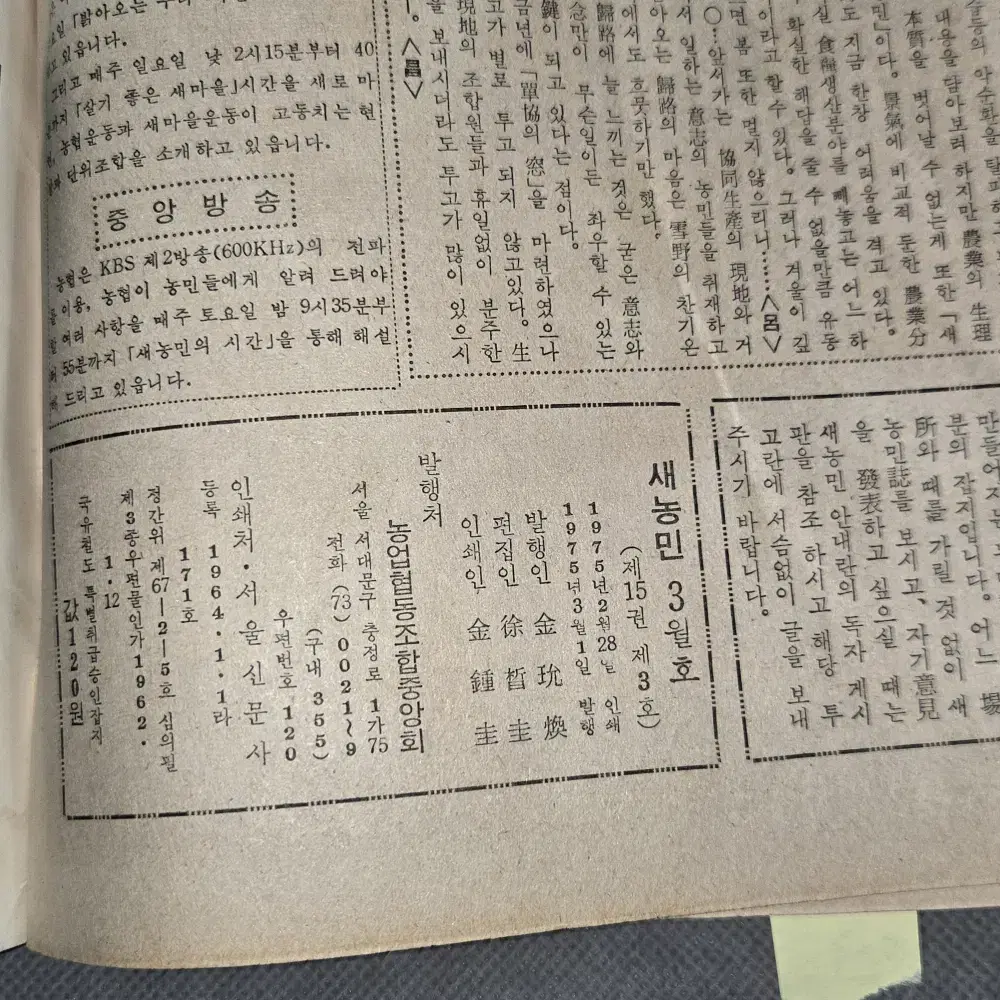 요일「밝아오는
고 있읍니다.
그리고 매주 일요일 낮 2시15분부터 40
까지「살기 좋은 새마을」시간을 새로 마
농협운동과 새마을운동이 고동치는 현
단위조합을 소개하고 있읍니다.
중앙방송
농협은 KBS 제2방송(600KHz)의 전파
를 이용, 농협이 농민들에게 알려 드려야
할 여러 사항을 매주 토요일 밤 9시35분부
터 55분까지「새농민의 시간」을 통해 해설
해 드리고 있읍니다.
農業의 生理
내용을 담아보려 하지만
本質을 벗어날 수 없는게 또한「새
민」이다. 景氣에 비교적 둔한 農業分
도 지금 한창 어려움을 격고 있다.
실 食糧생산분야를 빼놓고는 어느 하
확실한 해답을 줄 수 없을만큼 유동
이라고 할 수 있다. 그러나 겨울이 깊
면 봄 또한 멀지 않으리니……<呂>
○…앞서가는 協同生產의 現地와 거
서 일하는 意志의 농민들을 취재하고
아오는 歸路의 마음은 雪野의 찬기온
에서도 흐뭇하기만 했다.
歸路에 늘 느끼는 것은 굳은 意志와
念만이 무슨일이든 좌우할 수 있는
鍵이 되고 있다는 점이다.
금년에「單協의 窓」을 마련하였으나
고가 별로 투고 되지 않고있다. 生
現地의 조합원들과 휴일없이 분주한
을 보내시더라도 투고가 많이 있으시
. <昌>
만들어지는
분의 잡지입니다. 어느
所와 때를 가릴 것 없이 새
농민誌를 보시고, 자기意見
을 發表하고 싶으실 때는
새농민 안내란의 독자 게시
판을 참조 하시고 해당 투
고란에 서슴없이 글을 보내
주시기 바랍니다.
새농민 3월호
(제15권 제3호)
1975년2월28일 인쇄
1975년3월1일 발행
발행인 金 玧 煥
편집인 徐 晳 圭
인쇄인 金 鍾 圭
발행처
농업협동조합중앙회
서울 서대문구 충정로 1가75
전화 (73) 0021~9
(구내 355)
우편번호 120
인쇄처·서울신문사
등록 1964·1·1라
171호
정간위 제67—2—5호 심의필
제3종우편물인가1962·
1·12
국유철도 특별취급승인잡지
값120원